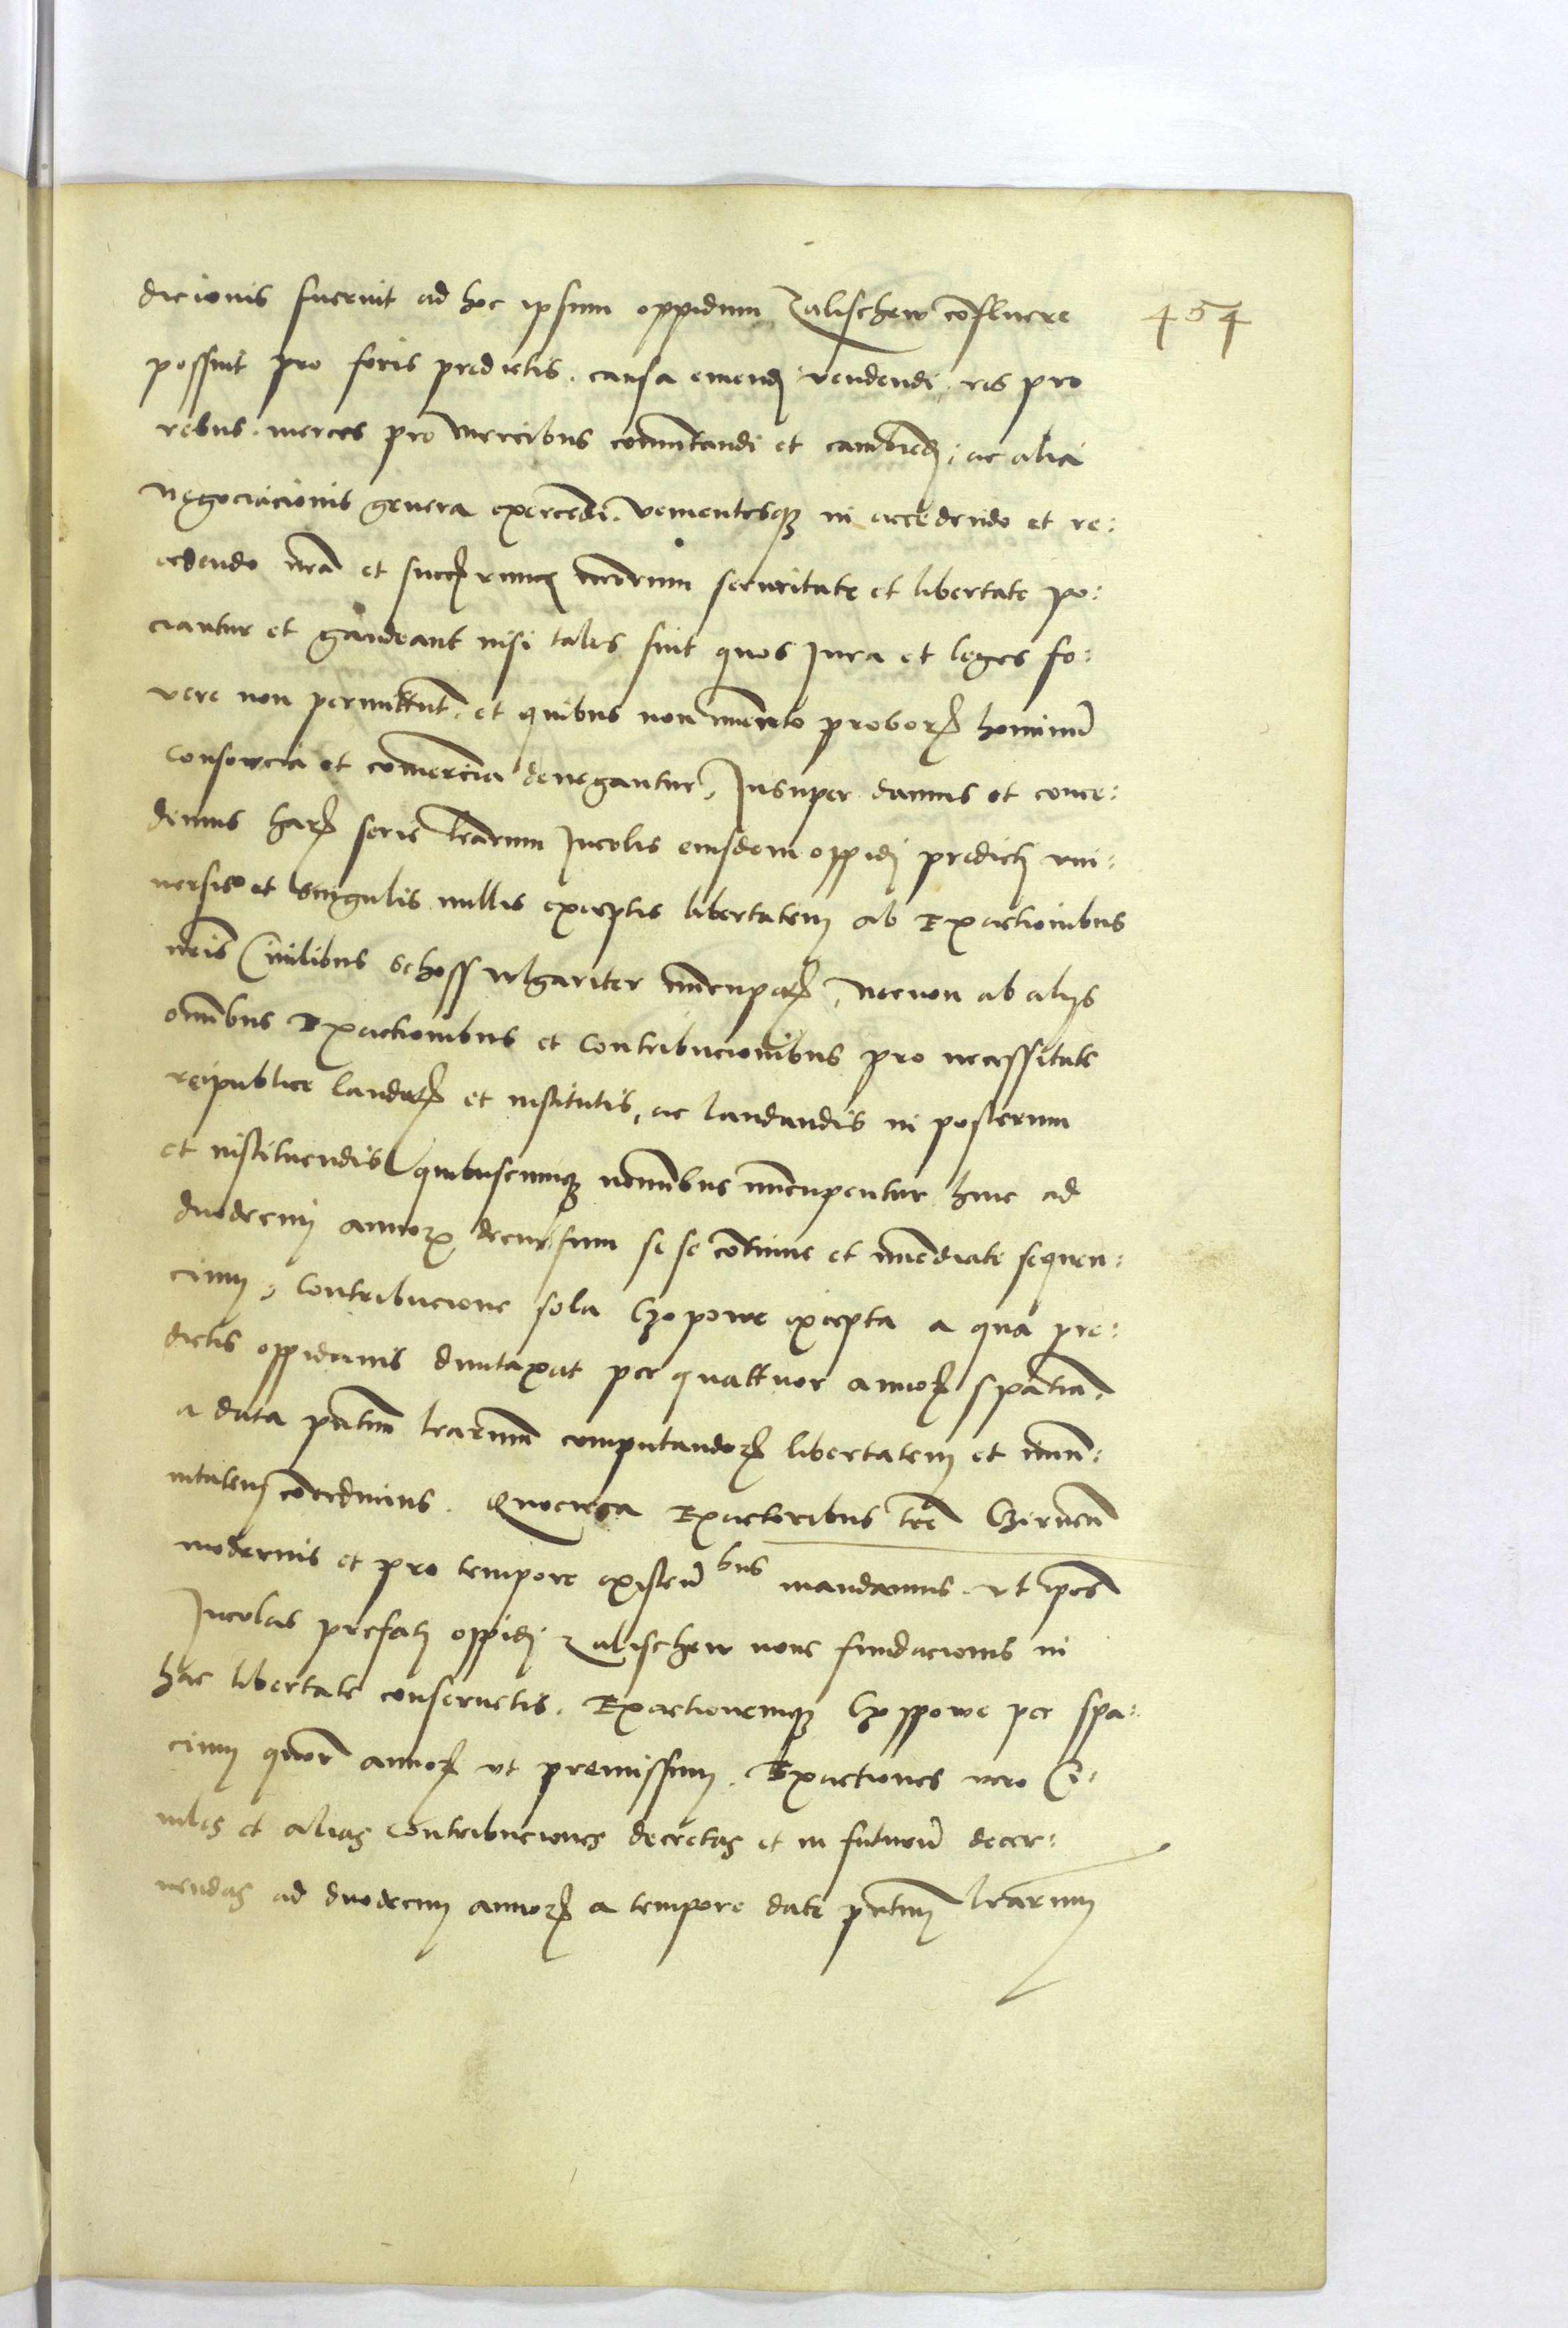 454
dicionis fuerint ad hoc ipsum oppidum Zalischew cōfluere
possint pro foris predictis. causa emendj vendendi, res pro
rebus. merces pro Mercibus comutandi et cambiēdj, ac alia
Negociacionis genera exercēdi. venientesqȝ in accedendo et re:
cedendo nr̄a et succꝝ nr̄orum securitate et libertate po:
ciantur et gaudeant nisi tales sint quos Jura et leges fo:
vere non permittūt. et quibus non imerito proborꝝ hominū
consorcia et comercia denegantur, Insuper damus et conce:
dimus harꝝ serie lr̄arum Incolis eiusdem oppidj predictj vni:
uersis et singulis nullis exceptis libertatem ab Exactionibus
nr̄is Ciuilibus schoss vlgariter nūcupatꝝ, Necnon ab alijs
omībus Exactionibus et Contribucionibus pro necessitate
reipublice laudatꝝ et institutis, ac laudandis in posterum
et instituendis quibuscumqȝ nomībus nūcupentur hinc ad
duodecim annorꝝ decursum se se cōtinue et īmediate sequen:
cium, Contribucione sola Czopowe excepta a qua pre:
dictis oppidanis duntaxat per quattuor annorꝝ spatia,
a data pn̄tium lr̄arum computandorꝝ libertatem et īmu:
nitatem cōcedimus. Quocirca Exactoribus tr̄e Chelmen̄
modernis et pro tempore existen̄bus mandamus. vt ip̄os
Incolas prefatj oppidj Zalischew noue fundacionis in
hac libertate conseruetis. Exactionemqȝ Czoppowe per spa:
cium quor̄ annorꝝ vt premissum. Exactiones vero Ci:
uiles et alias contribuciones decretas et in futurū decer:
nendas ad duodecim annorꝝ a tempore date pn̄tium lr̄arum